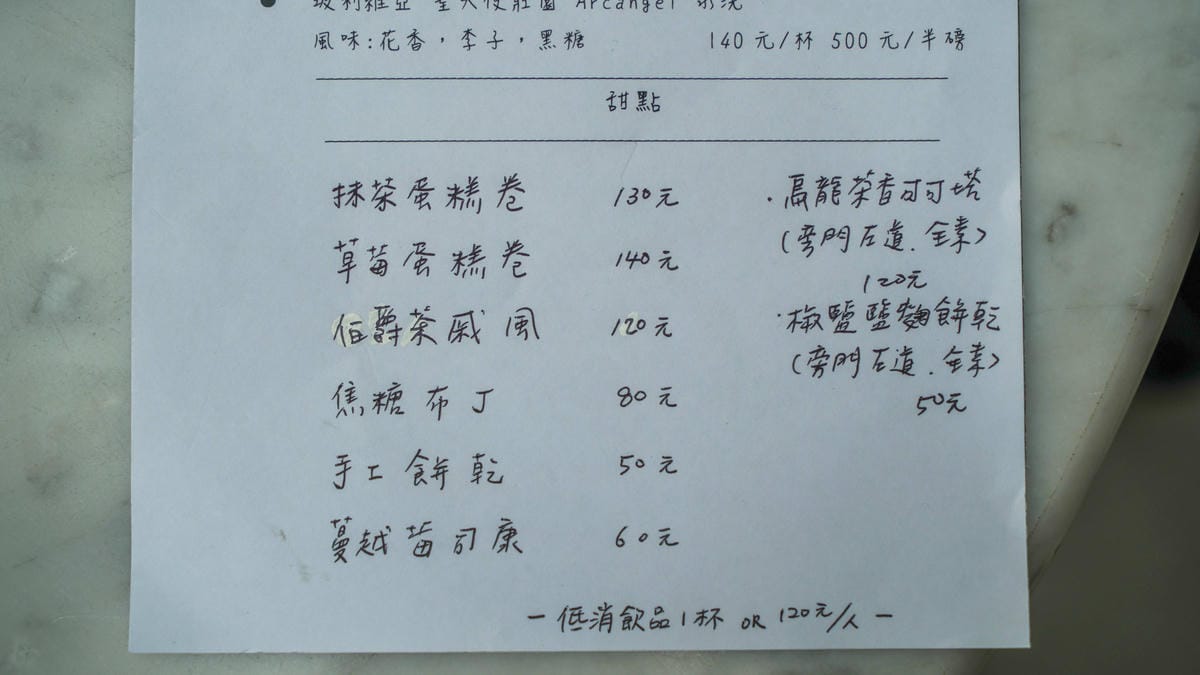 玻利維亞 聖天使莊園 Arcangel 水洗
風味:花香,李子,黑糖 140 元/杯 500 元/半磅
甜點
抹茶蛋糕卷 130元
草莓蛋糕卷 140元
伯爵茶戚風 120元
焦糖布丁 80元
手工餅乾 50元
蔓越莓司康 60元
·烏龍茶香可可塔
(旁門左道.全素)
120元
·椒鹽鹽麴餅乾
(旁門左道.全素)
50元
- 低消飲品1杯 OR 120元/人 -